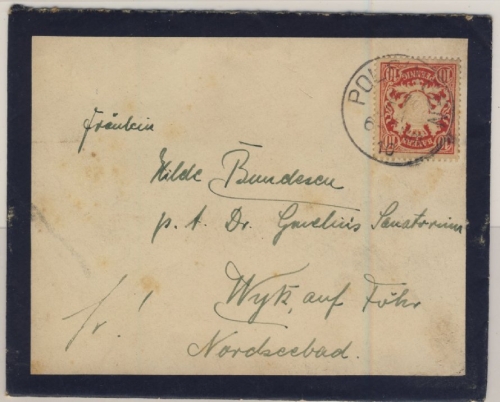 Fräulein
Hilde Bundesen
p. A. Dr. Gmelins Sanatorium
Wyk, auf Föhr
fr!
Nordseebad.
BAYERN
10